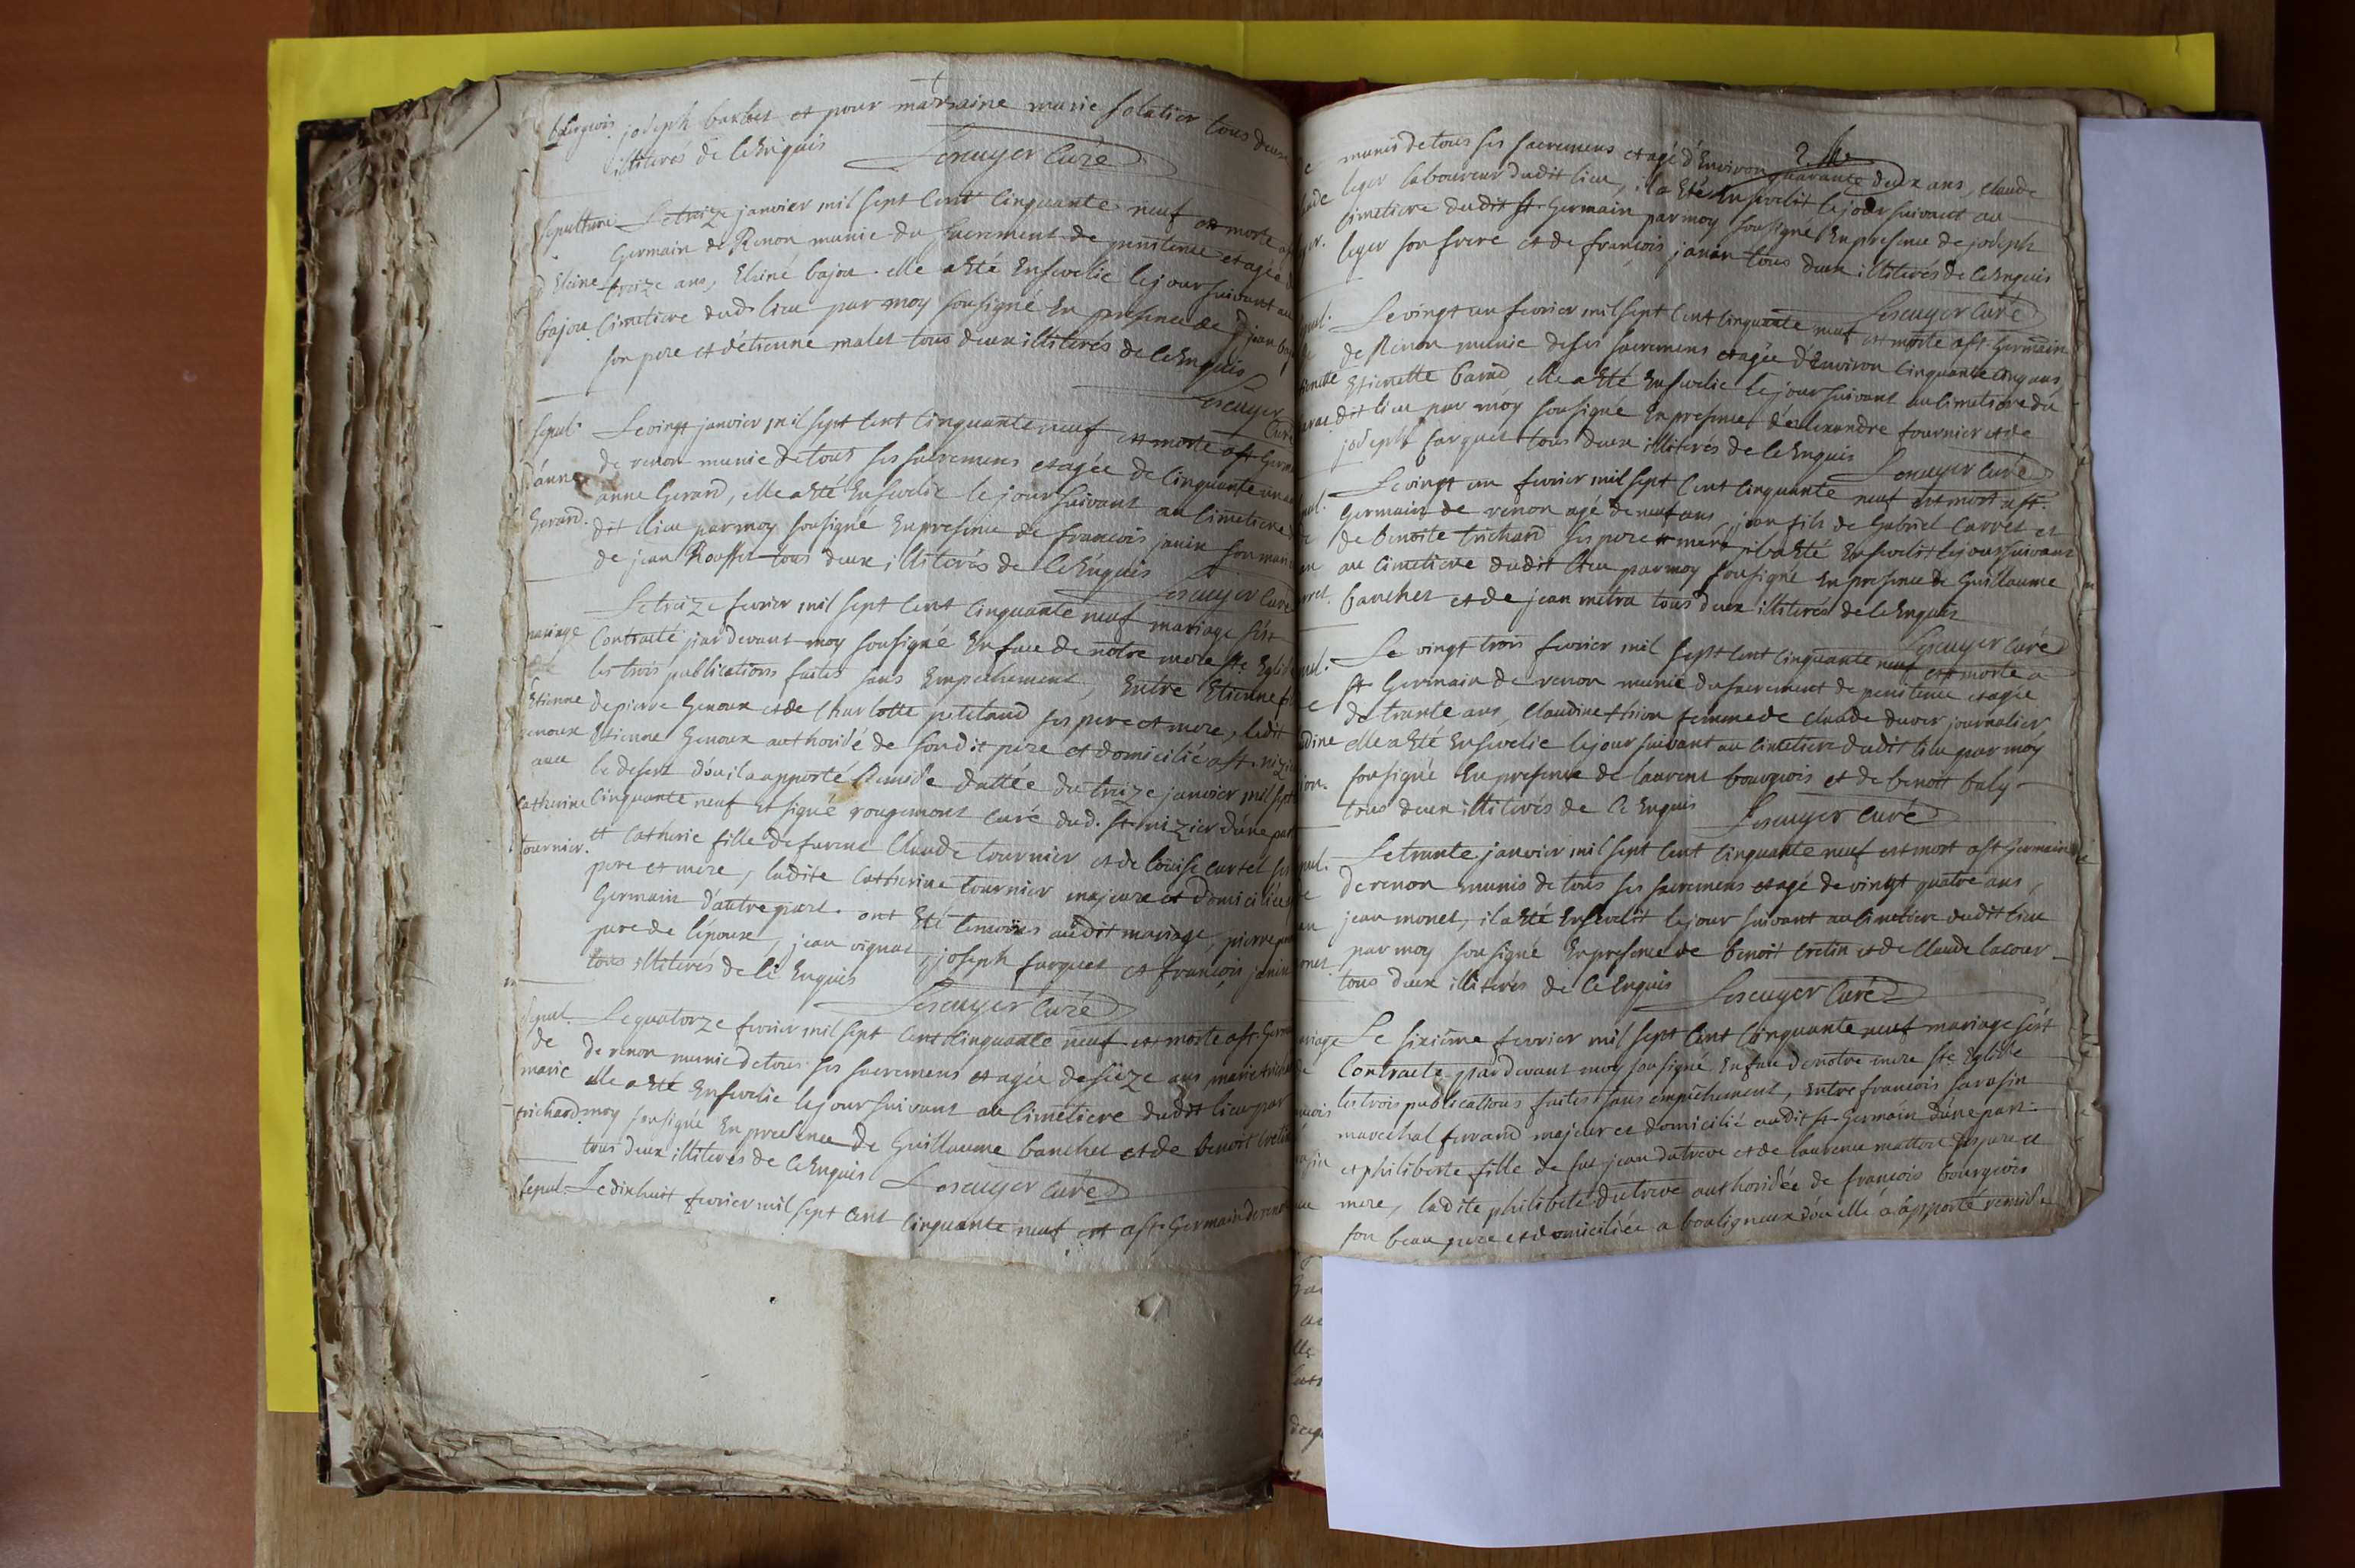 bourgeois joseph barbet et pour marraine marie solatier tous deux
illiterés de ce Enquis Lescuyer Curé
Sepulture Le treize janvier mil sept cent cinquante neuf est morte a st
Germain de Renon munie du sacrement de penitence et agée de
d'Eleine treize ans, Eleiné bajou. elle a Eté Ensevelie le jour suivant au
bajou. cimetiere dud. lieu par moy soussigné En presence de jean bajou
son pere et d'étienne malet tous deux illiterés de ce Enquis
Lescuyer Curé
sepul. Le vingt janvier mil sept cent cinquante neuf est morte a st Germain
de renon munie de tous ses sacremens et agée de cinquante un ans
d'anne anne Gerard, elle a Eté Ensevelie le jour suivant au cimetiere
Gerard. dit lieu par moy soussigné En presence de francois janin son mari
de jean Rouffet tous deux illiterés de ce Enquis Lescuyer Curé
Le treize fevrier mil sept cent cinquante neuf mariage s'est
mariage Contracté pardevant moy soussigné En face de notre mere Ste Eglise
les trois publications faites sans Empechement, Entre Etienne fils
Etienne de pierre Genoux et de Charlotte petetand ses pere et mere, ledit
Genoux Etienne Genoux authorisé de sondit pere et domicilié a st nizier
avec le desert d'ou il a apporté Remise dattée du treize janvier mil sept
Catherine cinquante neuf et signé rougemont curé dud. st nizier d'une part
tournier. et Catherine fille de furent Claude tournier et de loüise curtel ses
pere et mere, ladite Catherine tournier majeure et domiciliée
Germain d'autre part. ont Eté temoins audit mariage, pierre genoux
pere de l'époux, jean vignat, joseph farguet et françois janin
tous illiterés de ce Enquis
Lescuyer Curé
sepul. Le quatorze fevrier mil sept cent cinquante neuf est morte a st Germain
de de renon munie de tous ses sacremens et agée de seize ans marie trichard
marie elle a Eté Ensevelie le jour suivant au cimetiere dudit lieu par
trichard moy soussigné En presence de Guillaume banchet et de benoit cretin
tous deux illiterés de ce Enquis Lescuyer Curé
sepul. Le dixhuit fevrier mil sept cent cinquante neuf est a st Germain de renon
munis de tous ses sacremens et agé d'Environ quarante deux ans, claude
leger laboureur dudit lieu, il a Eté Ensevelit le jour suivant au
cimetiere dudit st Germain par moy soussigné En presence de joseph
leger son frere et de françois janin tous deux illiterés de ce Enquis
Lescuyer Curé
Le vingt un fevrier mil sept cent cinquante neuf est morte a st Germain
de Renon munie de ses sacremens et agée d'Environ cinquante cinq ans
Etienette barud elle a Eté Ensevelie le jour suivant au cimetiere du
dit lieu par moy soussigné En presence d'alexandre tournier et de
joseph farguet tous deux illiterés de ce Enquis Lescuyer Curé
Le vingt un fevrier mil sept cent cinquante neuf est mort a st
Germain de renon agé de neuf ans jean fils de Gabriel Carret et
de benoite trichard ses pere et mere il a Eté Ensevelit le jour suivant
au cimetiere dudit lieu par moy soussigné En presence de Guillaume
banchet et de jean metra tous deux illiterés de ce Enquis
Lescuyer Curé
Le vingt trois fevrier mil sept cent cinquante neuf est morte a
st Germain de renon munie du sacrement de penitence et agée
de trante ans, Claudine thion femme de claude duver journalier,
elle a Eté Ensevelie le jour suivant au cimetiere dudit lieu par moy
soussigné En presence de laurent bourgeois et de benoit baly
tous deux illiterés de ce Enquis Lescuyer Curé
Le trante janvier mil sept cent cinquante neuf est mort a st Germain
de renon munis de tous ses sacremens et agé de vingt quatre ans,
jean monet, il a Eté Ensevelit le jour suivant au cimetiere dudit lieu
par moy soussigné En presence de benoit cretin et de Claude lacour
tous deux illiterés de ce Enquis Lescuyer Curé
Le sixième fevrier mil sept cent cinquante neuf mariage s'est
Contracté pardevant moy soussigné En face de notre mere Ste Eglise
les trois publications faites sans empechement, Entre francois sarasin
marechal ferrand majeur et domicilié audit st Germain d'une part
et philiberte fille de fut jean dutreve et de laurence matton ses pere et
mere, ladite philiberte dutreve authorisée de francois bourgeois
son beau pere et domiciliée a bouligneux d'ou elle a apporté remise